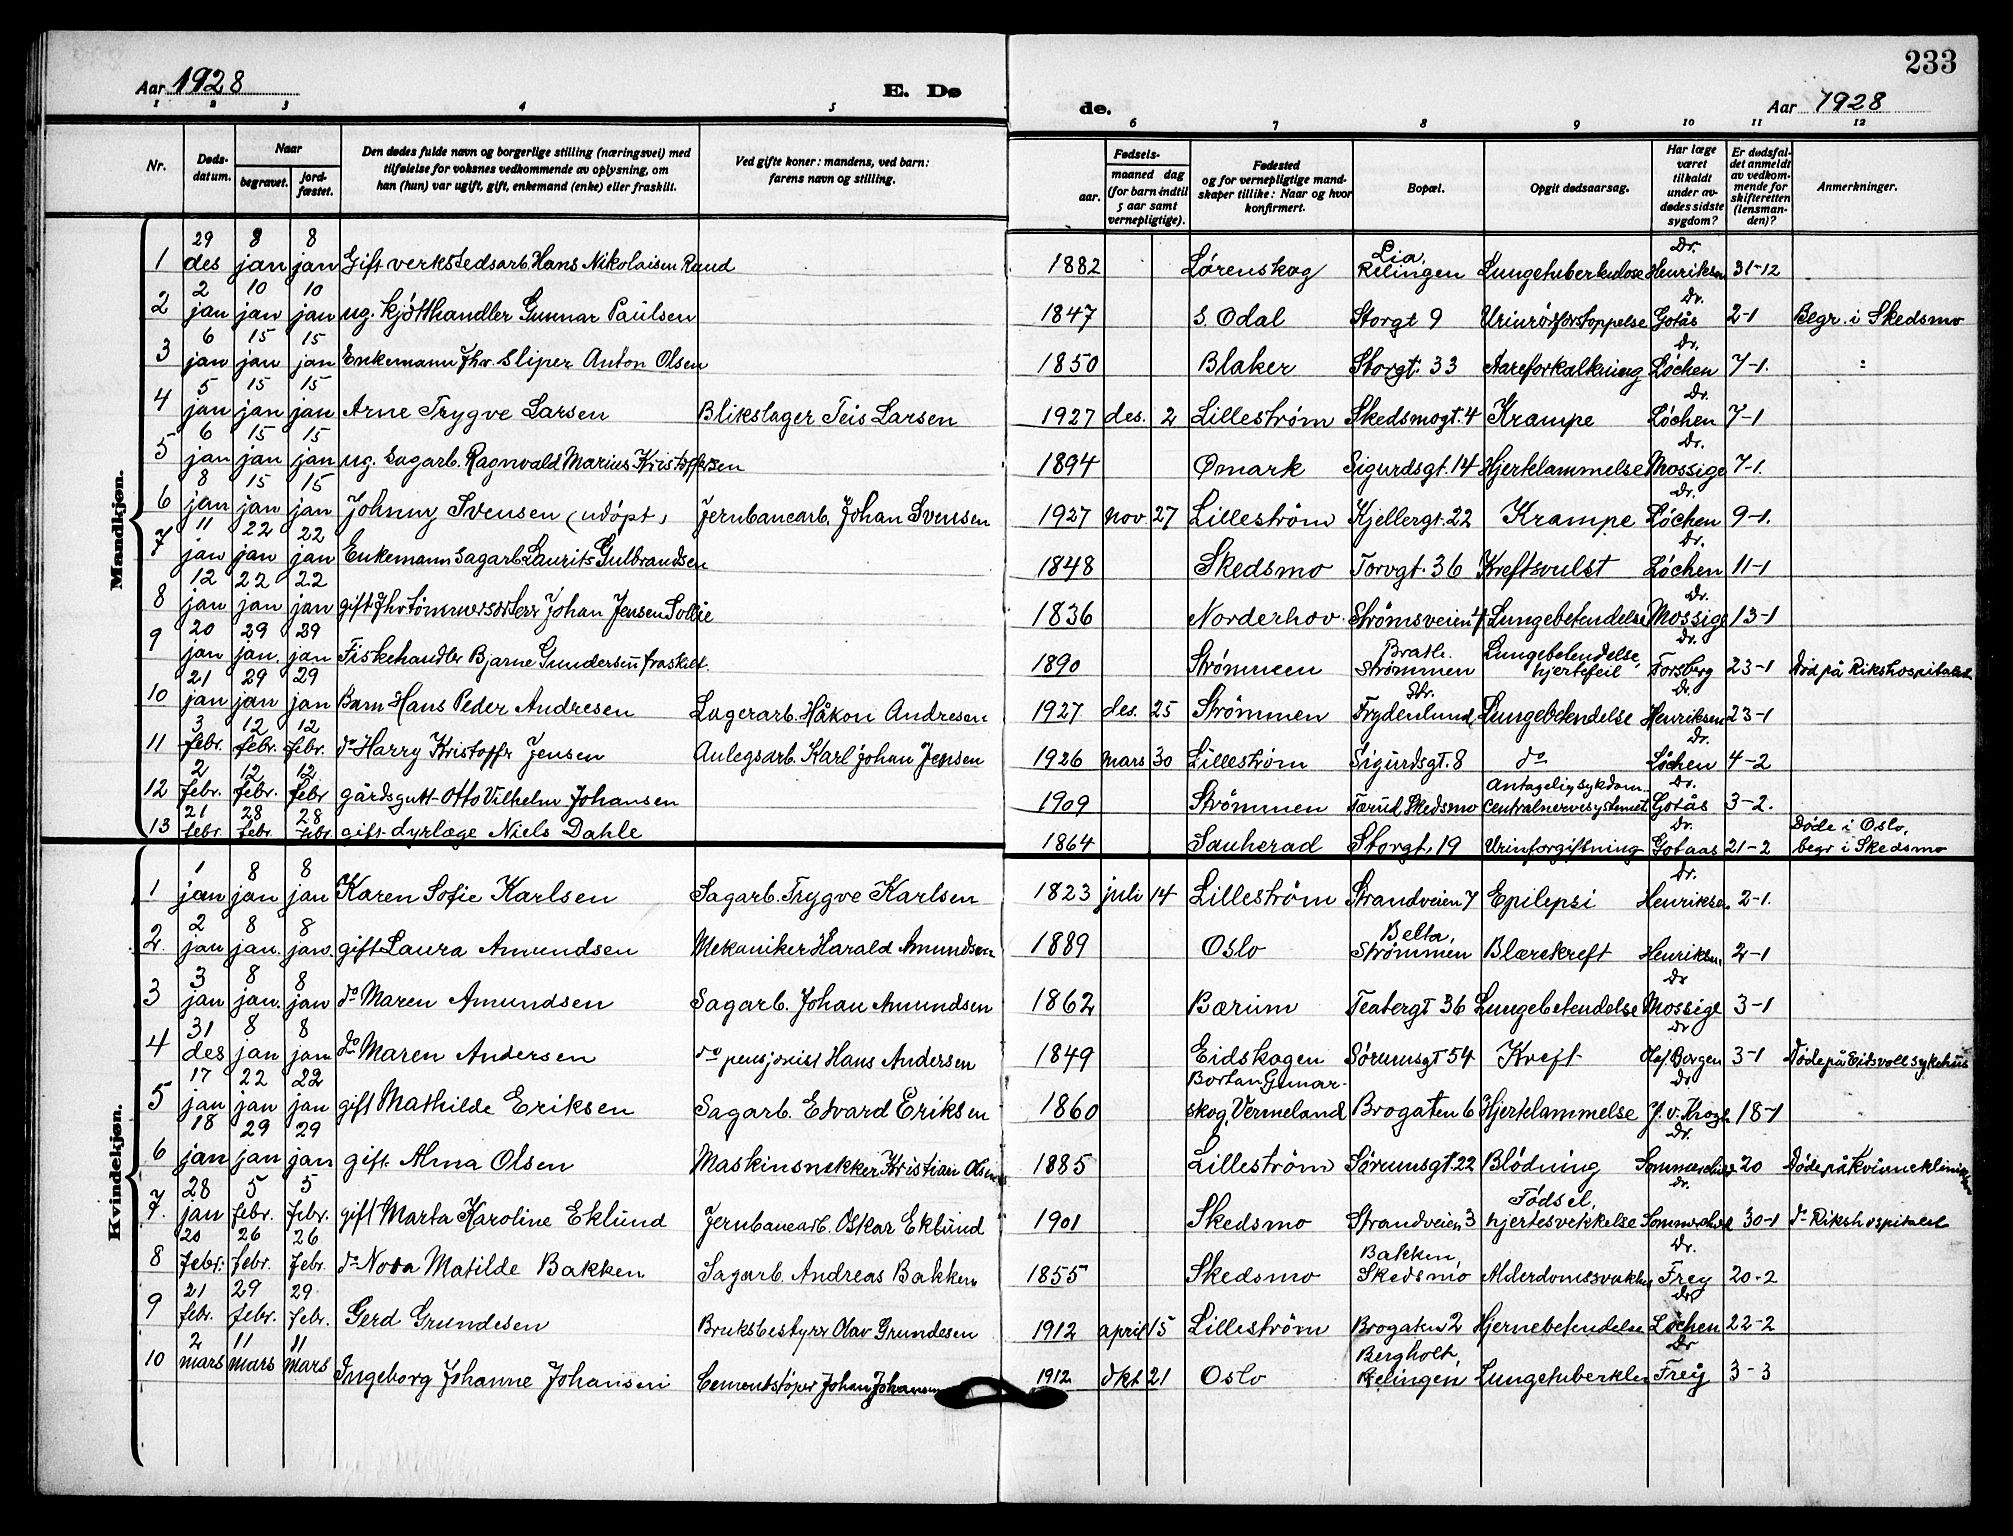 233
Aar 1928
E. Dø
de.
Aar 1928
1 2 3 4 5 6 7 8 9 10 11 12
Nr.
Døds-
datum.
Naar
begravet.
jord-
fæstet.
Den dødes fulde navn og borgerlige stilling (næringsvei) med
tilføielse for voksnes vedkommende av oplysning, om
han (hun) var ugift, gift, enkemand (enke) eller fraskilt.
Ved gifte koner: mandens, ved barn:
farens navn og stilling.
Fødsels-
aar.
maaned dag
(for barn indtil
5 aar samt
vernepligtige).
Fødested
og for vernepligtige mand-
skaper tillike: Naar og hvor
konfirmert.
Bopæl.
Opgit dødsaarsag.
Har læge
været
tilkaldt
under av-
dødes sidste
sygdom?
Er dødsfal-
det anmeldt
av vedkom-
mende for
skifteretten
(lensman-
den)?
Anmerkninger.
Mandkjøn.
1 29 des 8 jan 8 jan Gift verkstedsarb. Hans Nikolaisen Rud 1882 Lørenskog Lia, Rælingen Lungetuberkulose Dr. Henriksen 31-12
2 2 jan 10 jan 10 jan ug. kjøtthandler Gunnar Paulsen 1847 S. Odal Storgt 9 Urinrørforstoppelse Dr. Gotås 2-1 Begr. i Skedsmo
3 6 jan 15 jan 15 jan Enkemann fhv. sliper Anton Olsen 1850 Blaker Storgt. 33 Aareforkalkning Dr. Løchen 7-1. "
4 5 jan 15 jan 15 jan Arne Trygve Larsen Blikslager Teis Larsen 1927 des. 2 Lillestrøm Skedsmogt. 4 Krampe Dr. Løchen 7-1
5 6 jan 15 jan 15 jan ug. sagarb. Ragnvald Marius Kristoffersen 1894 Ømark Sigurdsgt. 14 Hjertelammelse Dr. Mossige 7-1.
6 8 jan 15 jan 15 jan Johnny Svensen (udøpt) Jernbanearb. Johan Svensen 1927 nov. 27 Lillestrøm Kjellergt. 22 Krampe Dr. Løchen 9-1.
7 11 jan 22 jan 22 jan Enkemann sagarb. Laurits Gulbrandsen 1848 Skedsmo Torvgt. 36 Kreftsvulst Dr. Løchen 11-1
8 12 jan 22 jan 22 jan gift fhv tømmersorterer Johan Jensen Sollie 1836 Norderhov Strømsveien 4 Lungebetendelse Dr. Mossige 13-1
9 20 jan 29 jan. 29 jan Fiskehandler Bjarne Gundersen fraskilt. 1890 Strømmen Strømmen Lungebetendelse, hjertefeil Dr. Forsberg 23-1 Død på Rikshospitalet
10 21 jan 29 jan 29 jan Barn Hans Peder Andresen Lagerarb. Håkon Andresen 1927 des. 25 Strømmen Str. Frydenlund, Lungebetendelse Dr. Henriksen 23-1
11 3 febr. 12 febr. 12 febr. do Harry Kristoffer Jensen Anlegsarb. Karl Johan Jensen 1926 mars 30 Lillestrøm Sigurdsgt. 8 do Dr. Løchen 4-2
12 2 febr. 12 febr. 12 febr gårdsgutt Otto Vilhelm Johansen 1909 Strømmen Tærud, Skedsmo Antagelig sykdom centralnervesystemet Dr. Gotås 3-2.
13 21 febr. 28 febr. 28 febr gift dyrlæge Niels Dahle 1864 Sauherad Storgt. 19 Urinforgiftning Dr. Gotaas 21-2 Døde i Oslo, begr i Skedsmo
Kvindekjøn.
1 1 jan 8 jan 8 jan Karen Sofie Karlsen Sagarb. Trygve Karlsen 1823 juli 14 Lillestrøm Strandveien 7 Epilepsi Dr. Henriksen 2-1.
2. 2 jan 8 jan. 8 jan. gift Laura Amundsen Mekaniker Harald Amundsen 1889 Oslo Belta, Strømmen Blærekreft Henriksen 2-1
3 3 jan 8 jan. 8 jan do Maren Amundsen Sagarb. Johan Amundsen 1862 Bærum Teatergt 36 Lungebetendelse Dr Mossige 3-1
4 31 des 8 jan 8 jan do Maren Andersen do pensjonist Hans Andersen 1849 Eidskogen Sørumsgt 54 Kreft Dr Haf. Borgen 3-1 Døde på Eidsvoll sykehus
5 17 jan 22 jan 22 jan gift Mathilde Eriksen Sagarb. Edvard Eriksen 1860 Bortan Gunnar- skog, Vermeland Brogaten 6 Hjertelammelse Dr J. v. Krogh 18-1
6 18 jan 29 jan 29 jan gift Alma Olsen Maskinsnekker Kristian Olsen 1885 Lillestrøm Sørumsgt. 22 Blødning Dr. Sommerschild 20 Døde på Kvinneklinikken
7. 28 jan 5 febr. 5 febr. gift Marta Karoline Eklund Jernbanearb. Oskar Eklund 1901 Skedsmo Strandveien 3 Fødsel, hjertesvekkelse Dr. Sommerschild 30-1 do Rikshospitalet
8 20 febr. 26 febr. 26 febr. do Nora Matilde Bakken Sagarb. Andreas Bakken 1855 Skedsmo Bakken, Skedsmo Alderdomssvakhet Dr. Frey 20-2
9 21 febr. 29 febr. 29 febr. Gerd Grundesen Bruksbestyrer Olav Grundesen 1912 april 15 Lillestrøm Brogaten 2 Hjernebetendelse Dr Løchen 22-2
10 2 mars 11 mars 11 mars Ingeborg Johanne Johansen Cementstøper Johan Johansen 1912 okt 21 Oslo Bergholt, Rælingen Lungetuberklen Dr Frey 3-3